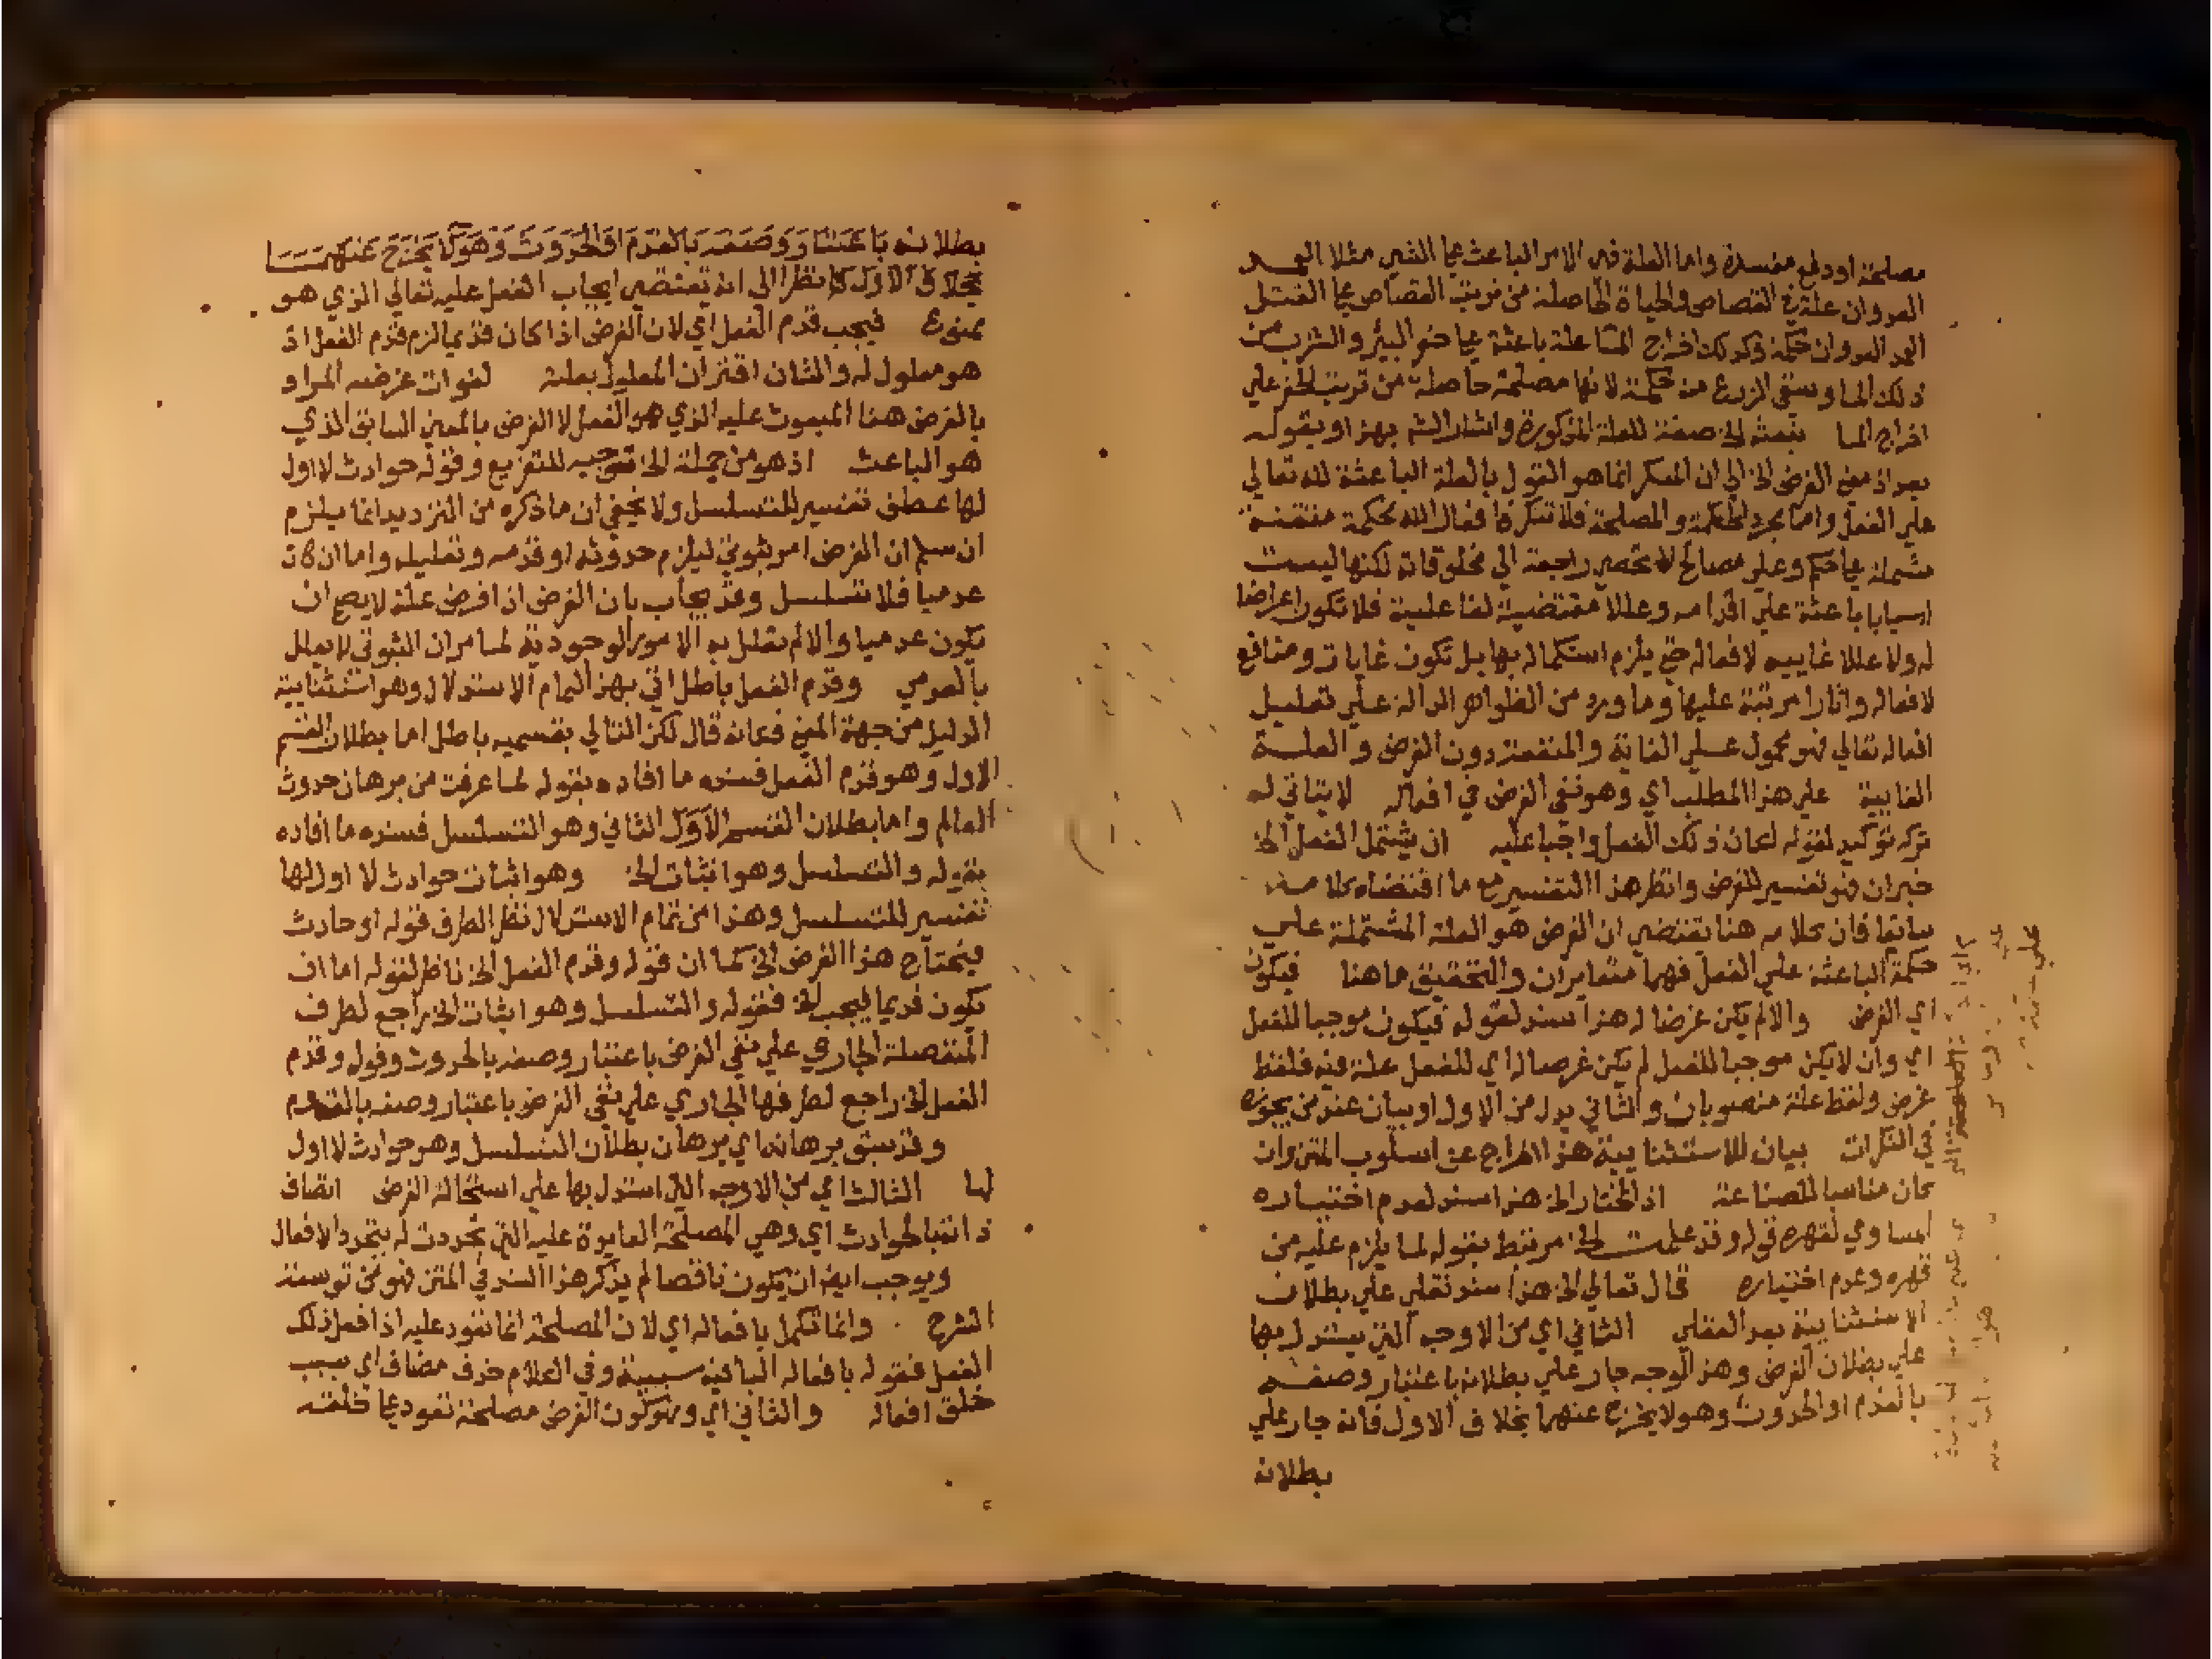 مصلحة او دفع مفسدة واما العلة فهي الامر الباعث علي الشي مثلا العمد
العدوان علة في القصاص والحياة الحاصلة من ترتب القصاص علي القتل
العمد العدوان حكمة وكذلك اخراج الما علة باعثة علي حفر البئر والشرب من
ذلك الما وسقي الزرع منه حكمة لانها مصلحة حاصلة من ترتب الحفر علي
اخراج الما تبعثه الخ صفة للعلة المذكورة واشار الشم بهذا وبقوله
بعد اذ معني الغرض الخ الي ان المنكر انما هو القول بالعلة الباعثة لله تعالي
علي الفعل واما مجرد الحكمة والمصلحة فلا تنكر فافعال الله محكمة متقنة
مشتملة علي حكم وعلي مصالح لا تحصي راجعة الي مخلوقاته لكنها ليست
اسبابا باعثة علي اقدامه وعللا مقتضية لفاعلية فلا تكون اعراضا
له ولا عللا غاييه لافعاله حتي يلزم استكماله بها بل تكون غايات ومنافع
لافعاله واثارا مرتبة عليها وما ورد من الظواهر الدالة علي تعليل
افعاله تعالي فهو محمول علي الغاية والمنفعة دون الغرض والعلة
الغايية علي هذا المطلب اي وهو نفي الغرض في افعاله لا يتاتي له
تركه توكيد لقوله لكان ذلك الفعل واجبا عليه ان يشتمل الفعل الخ
خبر ان فهو تفسير للغرض وانظر هذا التفسير مع ما اقتضاه كلامه
سابقا فان كلامه هنا يقتضي ان الغرض هو العلة المشتملة علي
حكمة الباعثة علي الفعل فهما متغايران والتحقيق ما هنا فيكون
اي الغرض والا لم يكن غرضا له هذا سند لقوله فيكون موجبا للفعل
اي وان لا يكن موجبا للفعل لم يكن غرضا له اي للفعل علة فيه فلفظ
غرض ولفظ علة منصوبان والثاني بدل من الاول او بيان عند من يجوزه
في النكرات بيان للاستثنايية هذا اخراج عن اسلوب المتن وان
كان مناسبا للصناعة اذ المختار الخ هذا سند لعدم اختياره
المساوي لقهره قوله وقد علمت الخ مرتبط بقوله لما يلزم عليه من
قهره وعدم اختياره قال تعالي الخ هذا سند نقلي علي بطلان
الاستثنايية بعد العقلي الثاني اي من الاوجه التي يستدل بها
علي بطلان الغرض وهذا الوجه جار علي بطلانه باعتبار وصفه
بالقدم او الحدوث وهو لا يخرج عنهما بخلاف الاول فانه جار علي
بطلانه
بطلانه باعتبار وصفه بالقدم او الحدوث وهو لا يخرج عنهما
بخلاف الاول نظرا الي انه يقتضي ايجاب الفعل عليه تعالي الذي هو
ممنوع فيجب قدم الفعل اي لان الغرض اذا كان قديما لزم قدم الفعل اذ
هو معلول له والشان اقتران المعلول بعلته لفوات غرضه المراد
بالغرض هنا المبعوث عليه الذي هو الفعل لا الغرض بالمعني السابق الذي
هو الباعث اذ هو من جملة الخ توجيه للتفريع وقوله حوادث لا اول
لها عطف تفسير للتسلسل ولا يخفي ان ما ذكره من الترديد انما يلزم
ان سلم ان الغرض امر ثبوتي ليلزم حدوثه او قدمه وتعليله واما ان كان
عدميا فلا تسلسل وقد يجاب بان الغرض اذا فرض علة لا يصح ان
يكون عدميا والا لم تعلل به الامور الوجودية لما مر ان الثبوتي لا يعلل
بالعدمي وقدم الفعل باطل اتي بهذا لتمام الاستدلال وهو استثنايية
الدليل من جهة المعني فكانه قال لكن التالي بقسميه باطل اما بطلان القسم
الاول وهو قدم الفعل فسنده ما افاده بقوله لما عرفت من برهان حدوث
العالم واما بطلان القسم الاول الثاني وهو التسلسل فسنده ما افاده
بقوله والتسلسل وهو اثبات الخ وهو اثبات حوادث لا اول لها
تفسير للتسلسل وهذا من تمام الاستدلال نظر الطرف قوله او حادث
فيحتاج هذا الغرض الخ كما ان قوله وقدم الفعل الخ ناظر لقوله اما ان
يكون قديما فيجب الخ فقوله والتسلسل وهو اثبات الخ راجع لطرف
المنفصلة الجاري علي نفي الغرض باعتبار وصفه بالحدوث وقوله وقدم
الفعل الخ راجع لطرفها الجاري علي نفي الغرض باعتبار وصفه بالقدم
وقد سبق برهانه اي برهان بطلان التسلسل وهو حوادث لا اول
لها الثالث اي من الاوجه التي استدل بها علي استحالة الغرض اتصاف
ذاته بالحوادث اي وهي المصلحة العايدة عليه التي تجددت له بتجدد الافعال
ويوجب ايضا ان يكون ناقصا لم يذكر هذا السند في المتن فهو من توسعة
الشرح وانما تكمل بافعاله اي لان المصلحة انما تعود عليه اذا فعل ذلك
الفعل فقوله بافعاله الباء فيه سببية وفي الكلام حذف مضاف اي بسبب
خلق افعاله والثاني اي وهو كون الغرض مصلحة تعود علي خلقه